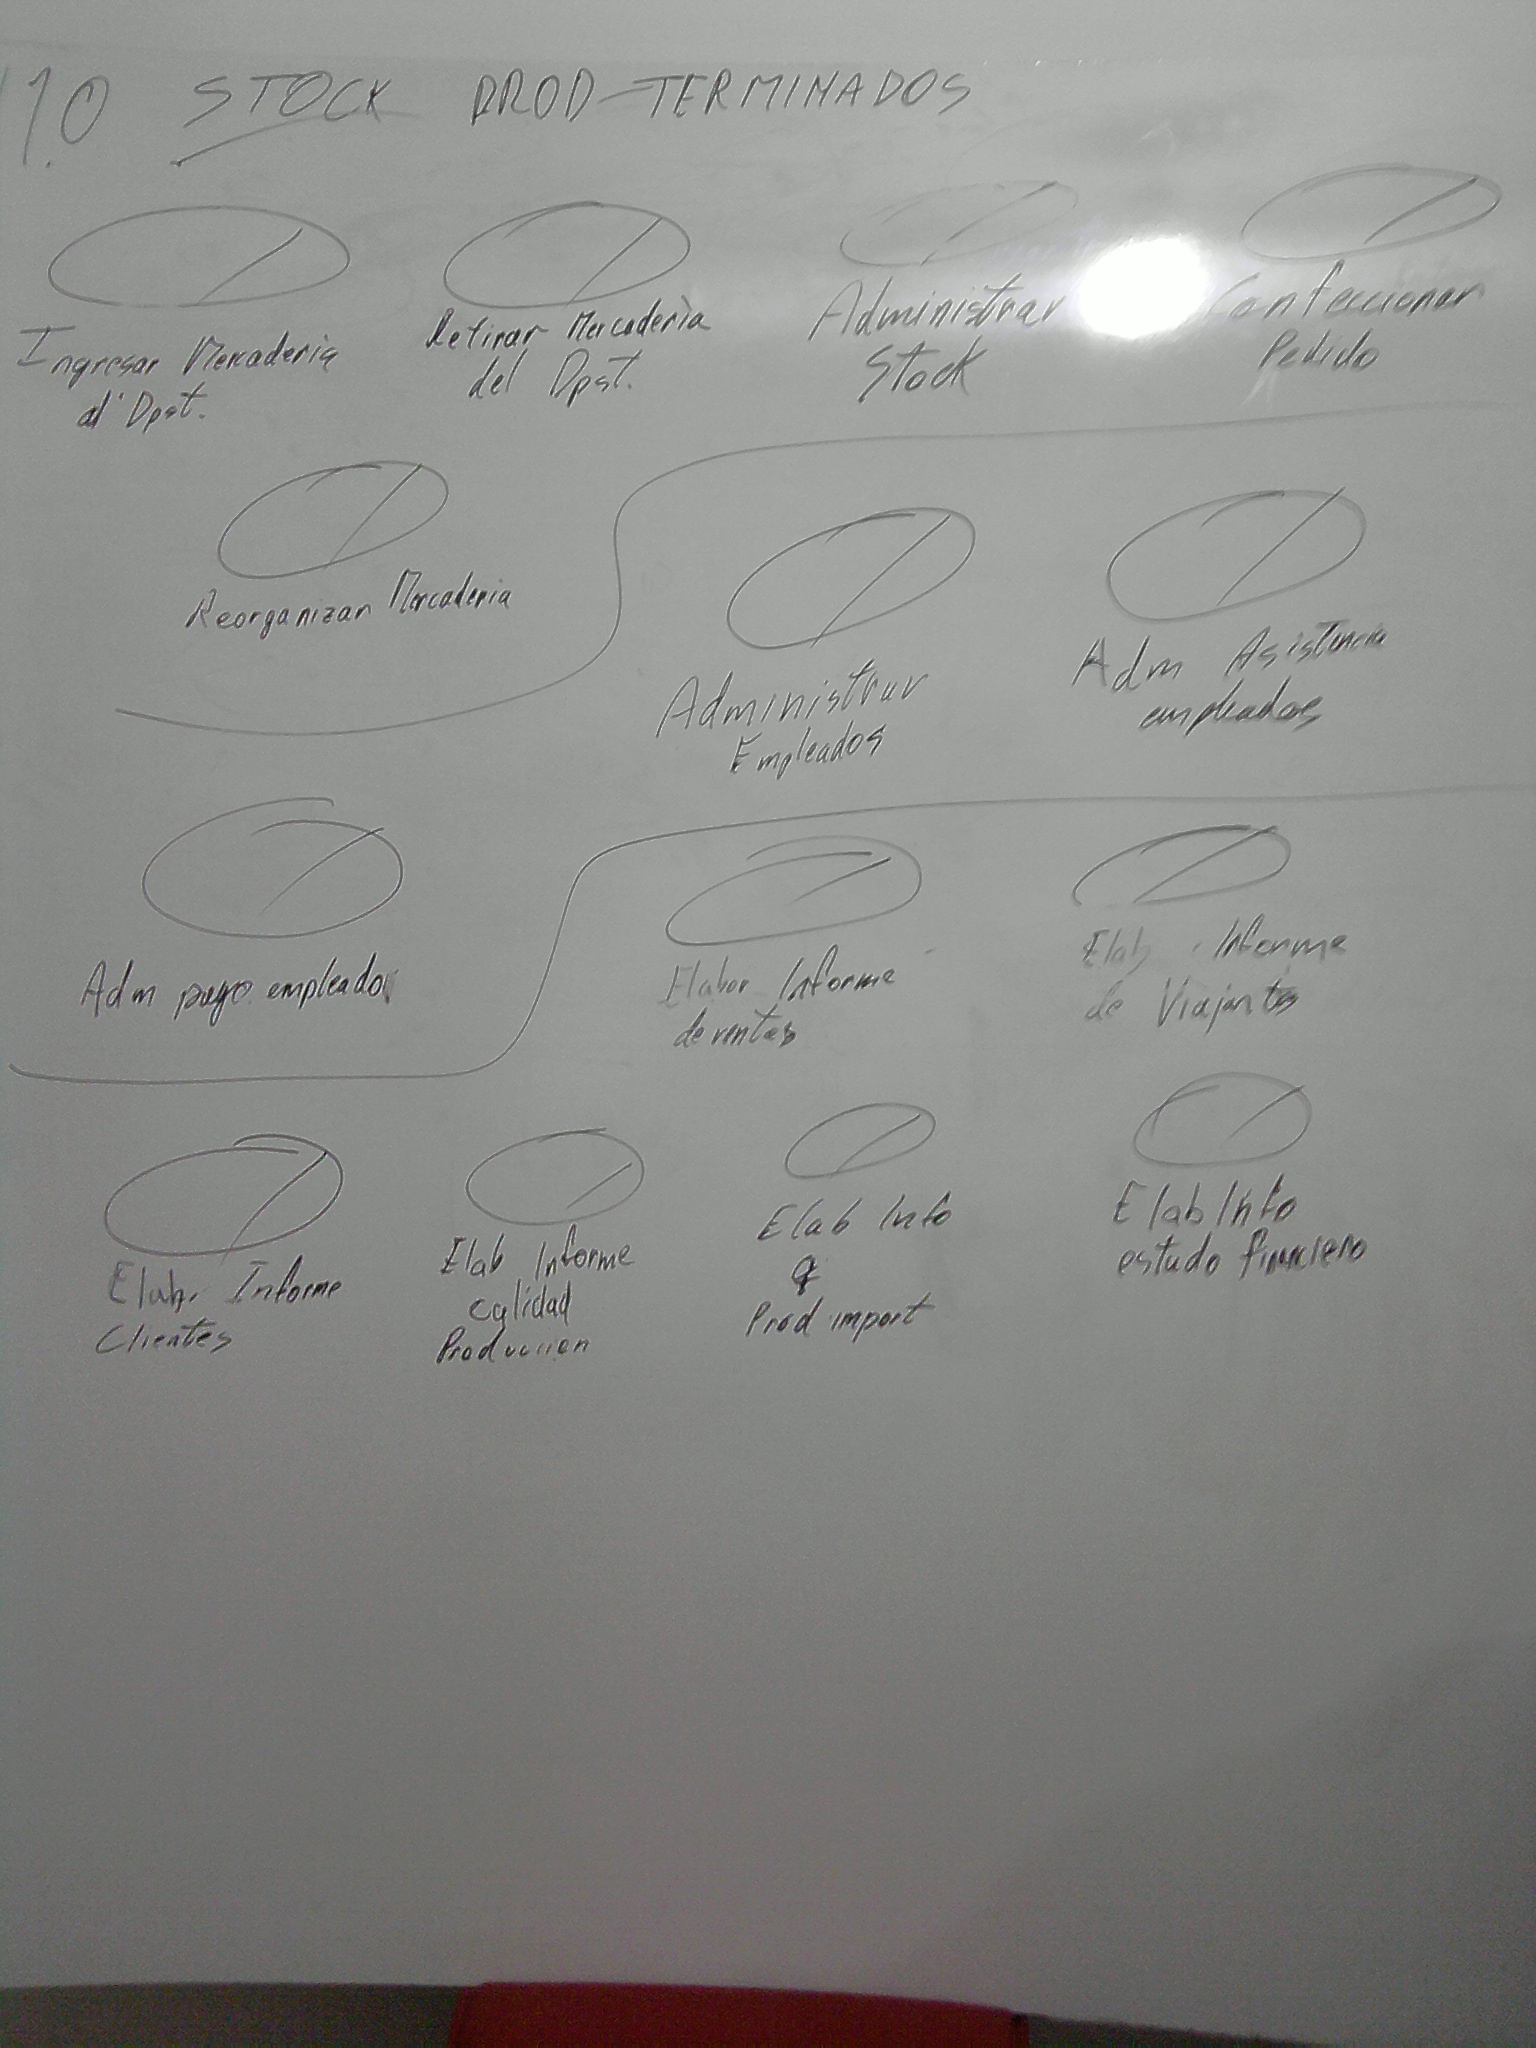 1.0 STOCK PROD-TERMINADOS
Ingresar Mercaderia
al Dpst.
Retirar Mercadería
del Dpst.
Administrar
Stock
Confeccionar
Pedido
Reorganizar Mercaderia
Administrar
Empleados
Adm Asistencia
empleados
Adm pago empleados
Elabor Informe
de ventas
Elab. Informe
de Viajantes
Elab. Informe
Clientes
Elab Informe
calidad
Produccion
Elab Info
Prod import
Elab Info
estudo financiero